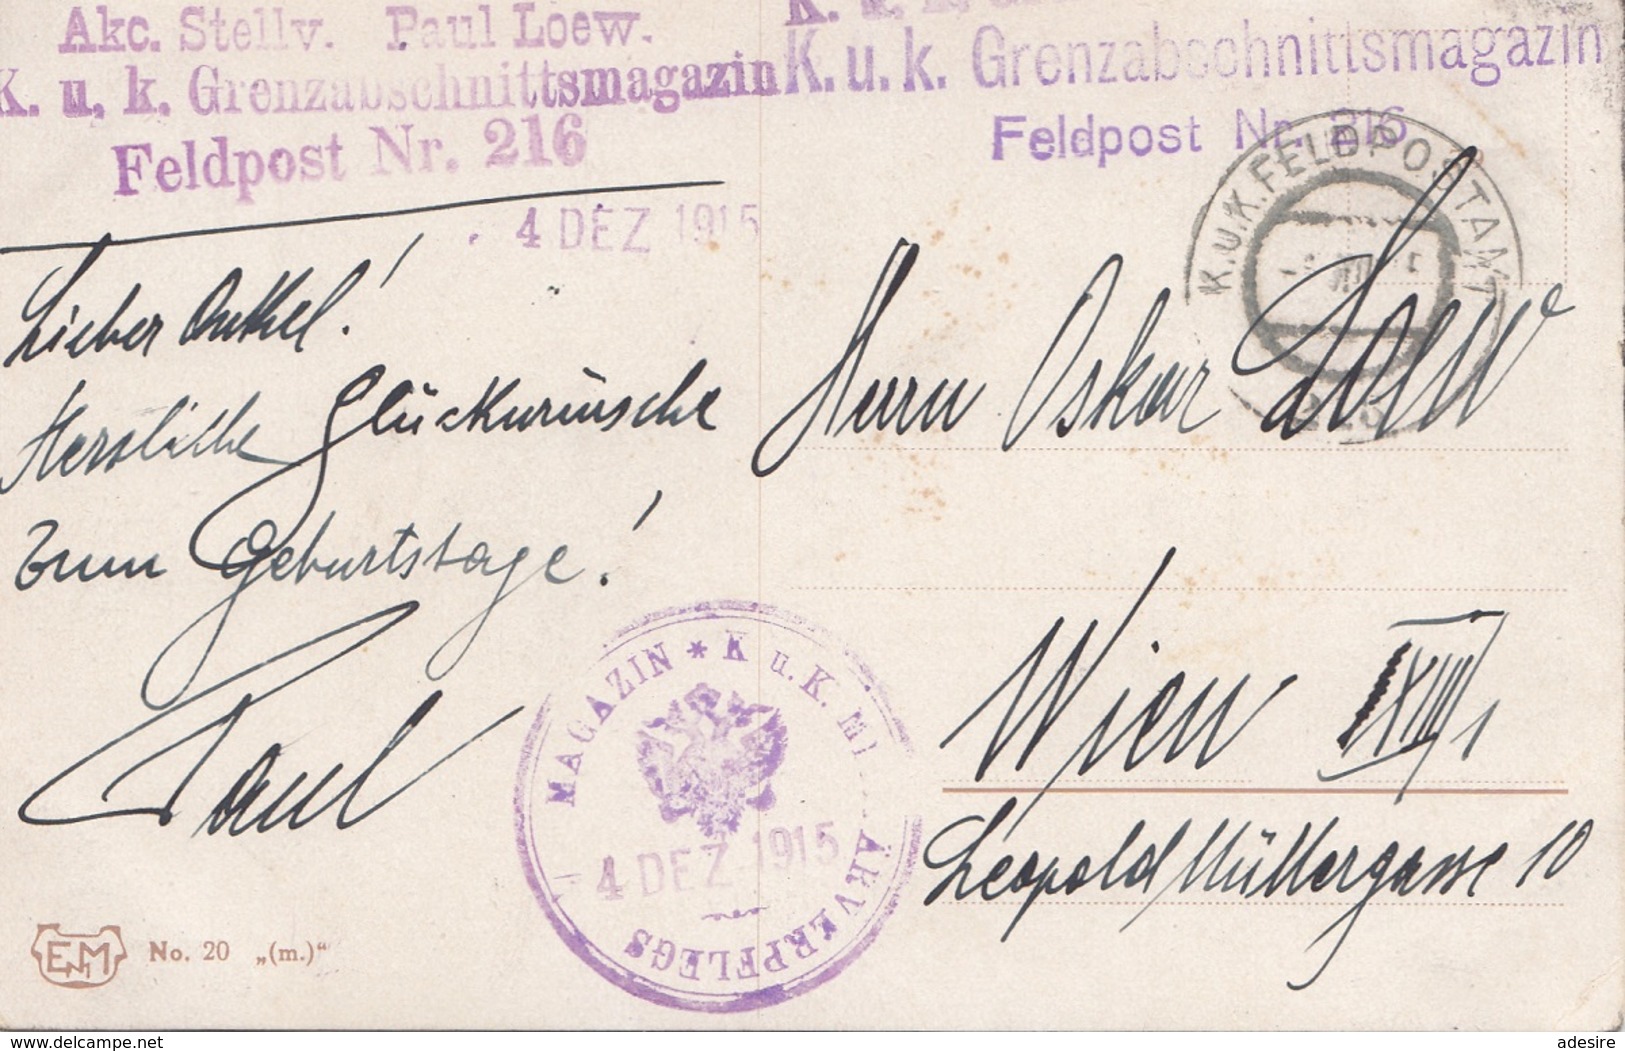 Akc. Stellv. Paul Loew.
K. u. k. Grenzabschnittsmagazin
Feldpost Nr. 216
4 DEZ 1915
K. u. k. Grenzabschnittsmagazin
Feldpost Nr. 216
K.u.K. FELDPOSTAMT
Lieber Onkel!
Herzliche Glückwünsche
zum Geburtstage!
Paul
Herrn Oskar Loew
Wien XVIII/1
Leopold Müllergasse 10
MAGAZIN * K u. K. MI ÄRVERPFLEGS
4 DEZ 1915
EMM No. 20 „(m.)“
www.delcampe.net
adesire